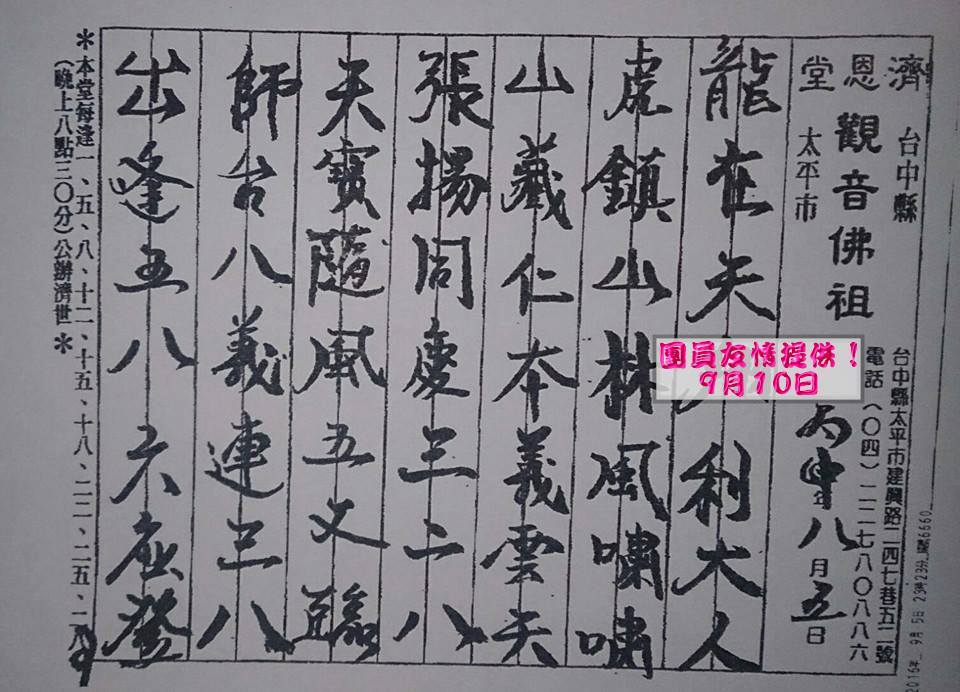 濟恩堂
台中縣
太平市
觀音佛祖
台中縣太平市建興路二四七巷五二號
電話(〇四)二二七八〇八八六
丙申年八月五日
團員友情提供!
9月10日
龍在天 利大人
虎鎮山林風嘯嘯
山藏仁本義雲天
張揚同慶三二八
天寶隨風五义臨
師台八義連三八
出逢五八六應登
*本堂每逢一、五、八、十二、十五、十八、二二、二五、二八
(晚上八點三〇分)公辦濟世*
2016年 9月 5日 23時23分
6660